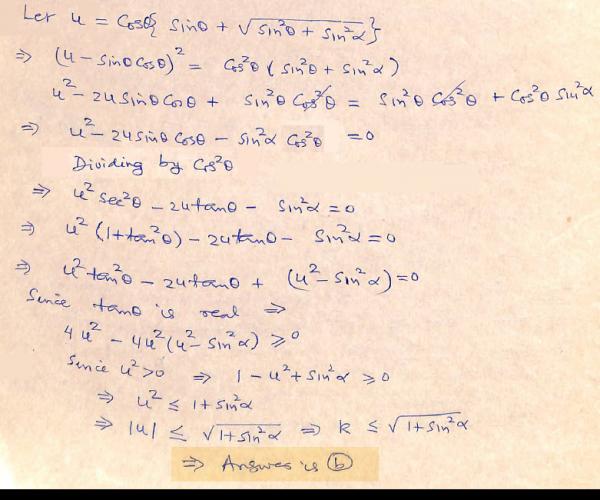 Let u = Cosθ{ Sinθ + √(Sin²θ + Sin²α)}
⇒ (u − Sinθ Cosθ)² = Cos²θ (Sin²θ + Sin²α)
u² − 2u Sinθ Cosθ + Sin²θ Cos²θ = Sin²θ Cos²θ + Cos²θ Sin²α
⇒ u² − 2u Sinθ Cosθ − Sin²α Cos²θ = 0
Dividing by Cos²θ
⇒ u² Sec²θ − 2u tanθ − Sin²α = 0
⇒ u² (1 + tan²θ) − 2u tanθ − Sin²α = 0
⇒ u² tan²θ − 2u tanθ + (u² − Sin²α) = 0
Since tanθ is real ⇒
4u² − 4u² (u² − Sin²α) ⩾ 0
Since u² > 0 ⇒ 1 − u² + Sin²α ⩾ 0
⇒ u² ≤ 1 + Sin²α
⇒ |u| ≤ √(1 + Sin²α) ⇒ k ≤ √(1 + Sin²α)
⇒ Answer is ⓑ